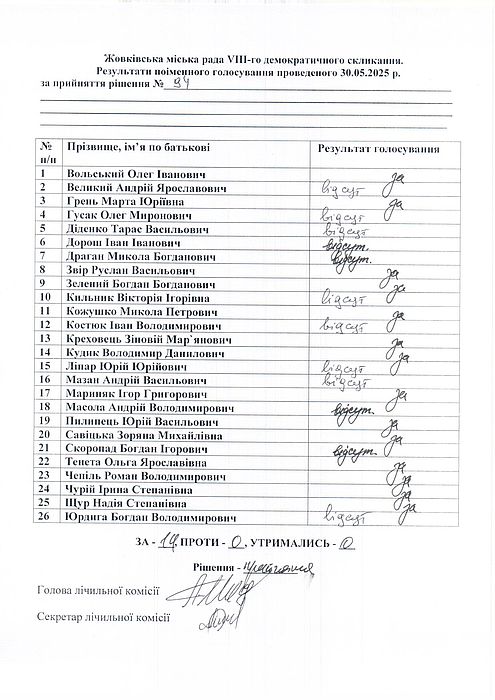 Жовківська міська рада VIII-го демократичного скликання.
Результати поіменного голосування проведеного 30.05.2025 р.
за прийняття рішення № 94
№ п/п Прізвище, ім’я по батькові Результат голосування
1 Вольський Олег Іванович за
2 Великий Андрій Ярославович відсут
3 Грень Марта Юріївна за
4 Гусак Олег Миронович відсут
5 Діденко Тарас Васильович відсут
6 Дорош Іван Іванович відсут.
7 Драган Микола Богданович відсут.
8 Звір Руслан Васильович за
9 Зелений Богдан Богданович за
10 Кильник Вікторія Ігорівна відсут
11 Кожушко Микола Петрович за
12 Костюк Іван Володимирович відсут
13 Креховець Зіновій Мар`янович за
14 Кудик Володимир Данилович за
15 Лінар Юрій Юрійович відсут
16 Мазан Андрій Васильович відсут
17 Мариняк Ігор Григорович за
18 Масола Андрій Володимирович відсут.
19 Пилинець Юрій Васильович за
20 Савіцька Зоряна Михайлівна за
21 Скоропад Богдан Ігорович відсут.
22 Тенета Ольга Ярославівна за
23 Чепіль Роман Володимирович за
24 Чурій Ірина Степанівна за
25 Щур Надія Степанівна за
26 Юрдига Богдан Володимирович відсут
ЗА - 14, ПРОТИ - 0, УТРИМАЛИСЬ - 0
Рішення - прийняття
Голова лічильної комісії
Секретар лічильної комісії